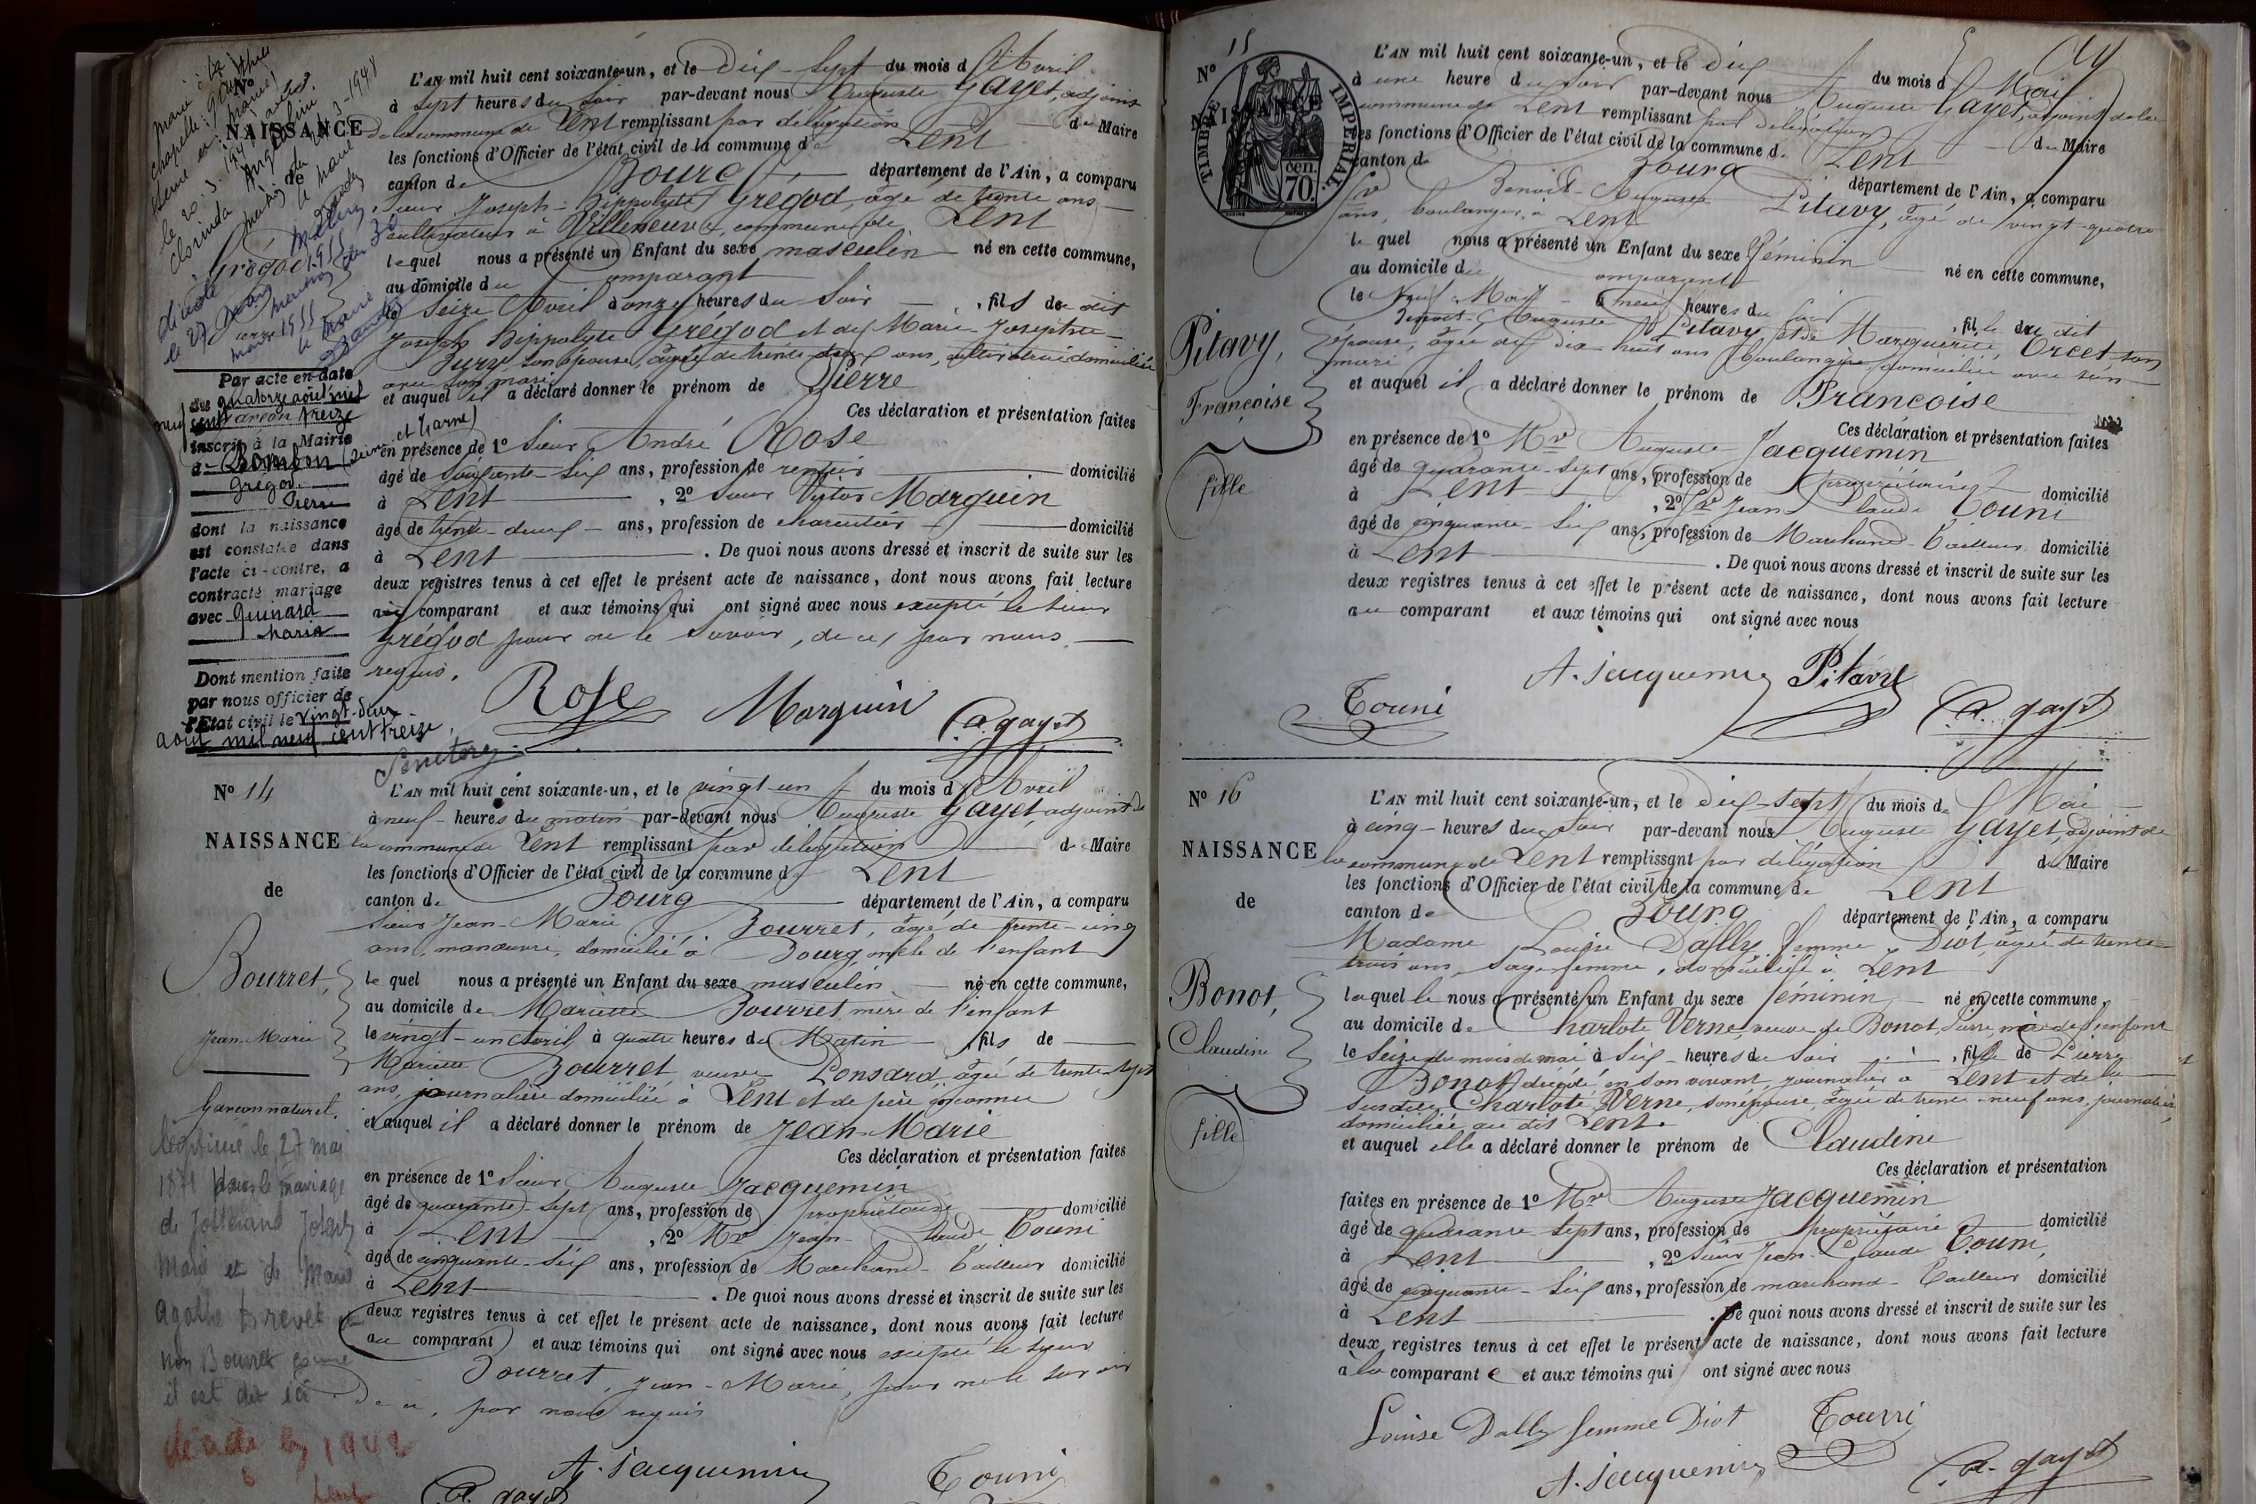 No
NAISSANCE
de
Grégod
L'AN mil huit cent soixante-un, et le Dix-Sept du mois d'Avril
à Sept heures du Soir par-devant nous Auguste Gayet, adjoint
de la commune de Lent remplissant par délégation du Maire
les fonctions d'Officier de l'état civil de la commune de Lent
canton de Bourg département de l'Ain, a comparu
Sieur Joseph-Hippolyte Grégod, âgé de trente ans
cultivateur à Villeneuve, commune de Lent
lequel nous a présenté un Enfant du sexe masculin né en cette commune,
au domicile du comparant
le Seize Avril à onze heures du Soir, fils du dit
Joseph Hippolyte Grégod et de Marie-Josephte
Bury son épouse, âgée de trente-deux ans, cultivatrice domiciliée
avec son mari
et auquel il a déclaré donner le prénom de Pierre
Ces déclaration et présentation faites
en présence de 1o Sieur André Rose
âgé de Soixante-Six ans, profession de rentier domicilié
à Lent, 2o Sieur Victor Marquin
âgé de trente-deux ans, profession de charcutier domicilié
à Lent. De quoi nous avons dressé et inscrit de suite sur les
deux registres tenus à cet effet le présent acte de naissance, dont nous avons fait lecture
au comparant et aux témoins qui ont signé avec nous excepté le sieur
Grégod pour ne le Savoir, de ce par nous
requis.
Rose Marquin A. gayet
Par acte en date
du quatorze août mil
neuf cent treize
inscrit à la Mairie
de Bombon (Seine et Marne)
Grégod
Pierre
dont la naissance
est constatée dans
l'acte ci-contre, a
contracté mariage
avec Guinard
Maria
Dont mention faite
par nous officier de
l'Etat civil le vingt-deux
août mil neuf cent treize
No 14
NAISSANCE
de
Bourret,
Jean-Marie
Garçon naturel.
Légitimé le 27 mai
dans le mariage
de Joseph
Marie et de Marie
Agathe Brevet et
non Bourret comme
il est dit ici
décédé 1942
L'AN mil huit cent soixante-un, et le vingt-un du mois d'Avril
à neuf heures du matin par-devant nous Auguste Gayet, adjoint de
la commune de Lent remplissant par délégation du Maire
les fonctions d'Officier de l'état civil de la commune de Lent
canton de Bourg département de l'Ain, a comparu
Sieur Jean-Marie Bourret, âgé de trente-cinq
ans, manœuvre, domicilié à Bourg, oncle de l'enfant
le quel nous a présenté un Enfant du sexe masculin né en cette commune,
au domicile de Mariette Bourret, mère de l'enfant
le vingt-un Avril à quatre heures du Matin, fils de
Mariette Bourret veuve Ponsard, âgée de trente-sept
ans, journalière domiciliée à Lent et de père inconnu
et auquel il a déclaré donner le prénom de Jean-Marie
Ces déclaration et présentation faites
en présence de 1o Sieur Auguste Jacquemin
âgé de quarante-sept ans, profession de propriétaire domicilié
à Lent, 2o Mr Jean-Claude Touni
âgé de cinquante-six ans, profession de Marchand-Tailleur domicilié
à Lent. De quoi nous avons dressé et inscrit de suite sur les
deux registres tenus à cet effet le présent acte de naissance, dont nous avons fait lecture
au comparant et aux témoins qui ont signé avec nous excepté le sieur
Bourret, Jean-Marie, pour ne le savoir
de ce, par nous requis
A. Jacquemin Touni
A. gayet
No 15
NAISSANCE
TIMBRE IMPERIAL.
70. cen.
Pitavy,
Françoise
fille
L'AN mil huit cent soixante-un, et le Dix du mois de Mai
à une heure du Soir par-devant nous Auguste Gayet, adjoint de la
commune de Lent remplissant par délégation du Maire
les fonctions d'Officier de l'état civil de la commune de Lent
canton de Bourg département de l'Ain, a comparu
Sr Benoit-Auguste Pitavy, âgé de vingt-quatre
ans, boulanger, à Lent
le quel nous a présenté un Enfant du sexe féminin né en cette commune,
au domicile du comparant
le Neuf Mai à neuf heures du soir, fille du dit
Benoit-Auguste Pitavy et de Marguerite Orcet son
épouse, âgée de dix-huit ans boulangère, domiciliée avec son
mari
et auquel il a déclaré donner le prénom de Françoise
Ces déclaration et présentation faites
en présence de 1o Mr Auguste Jacquemin
âgé de quarante-sept ans, profession de propriétaire domicilié
à Lent, 2o Sr Jean Claude Touni
âgé de cinquante-six ans, profession de Marchand-Tailleur domicilié
à Lent. De quoi nous avons dressé et inscrit de suite sur les
deux registres tenus à cet effet le présent acte de naissance, dont nous avons fait lecture
au comparant et aux témoins qui ont signé avec nous
A. Jacquemin Pitavy
Touni A. gayet
No 16
NAISSANCE
de
Bonot,
Claudine
fille
L'AN mil huit cent soixante-un, et le Dix-sept du mois de Mai
à cinq heures du soir par-devant nous Auguste Gayet, adjoint de
la commune de Lent remplissant par délégation du Maire
les fonctions d'Officier de l'état civil de la commune de Lent
canton de Bourg département de l'Ain, a comparu
Madame Louise Dally femme Diot, âgée de trente
trois ans, sage femme, domiciliée à Lent
laquelle nous a présenté un Enfant du sexe féminin né en cette commune,
au domicile de Charlote Verne, veuve de Bonot Pierre mère de l'enfant
le Seize du mois de mai à Six heures du Soir, fille de Pierre
Bonot décédé en son vivant, journalier à Lent et de la
susdite Charlote Verne, son épouse, âgée de trente-neuf ans, journalière,
domiciliée au dit Lent.
et auquel elle a déclaré donner le prénom de Claudine
Ces déclaration et présentation
faites en présence de 1o Mr Auguste Jacquemin
âgé de quarante sept ans, profession de propriétaire domicilié
à Lent, 2o Sieur Jean-Claude Touni,
âgé de cinquante-six ans, profession de marchand-Tailleur domicilié
à Lent. De quoi nous avons dressé et inscrit de suite sur les
deux registres tenus à cet effet le présent acte de naissance, dont nous avons fait lecture
à la comparante et aux témoins qui ont signé avec nous
Louise Dally femme Diot Touni
A. Jacquemin A. gayet